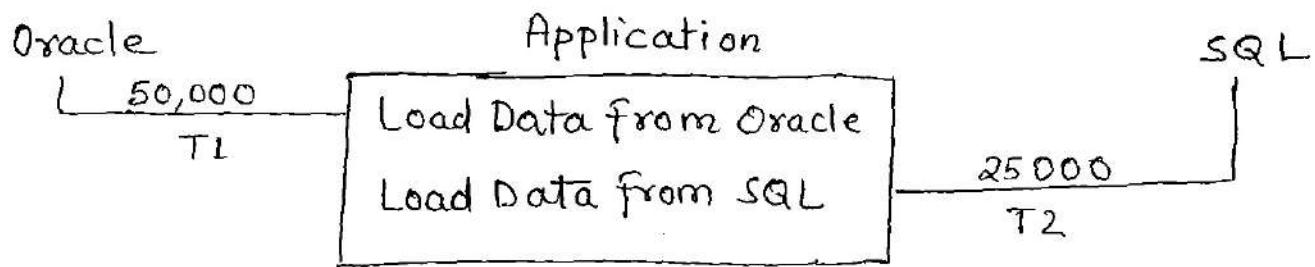 Oracle
Application
SQL
50,000
T1
Load Data from Oracle
Load Data from SQL
25000
T2